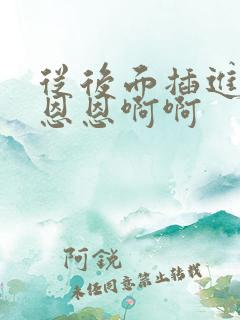 從後面插進
恩恩啊啊
阿銳
未经同意禁止转载